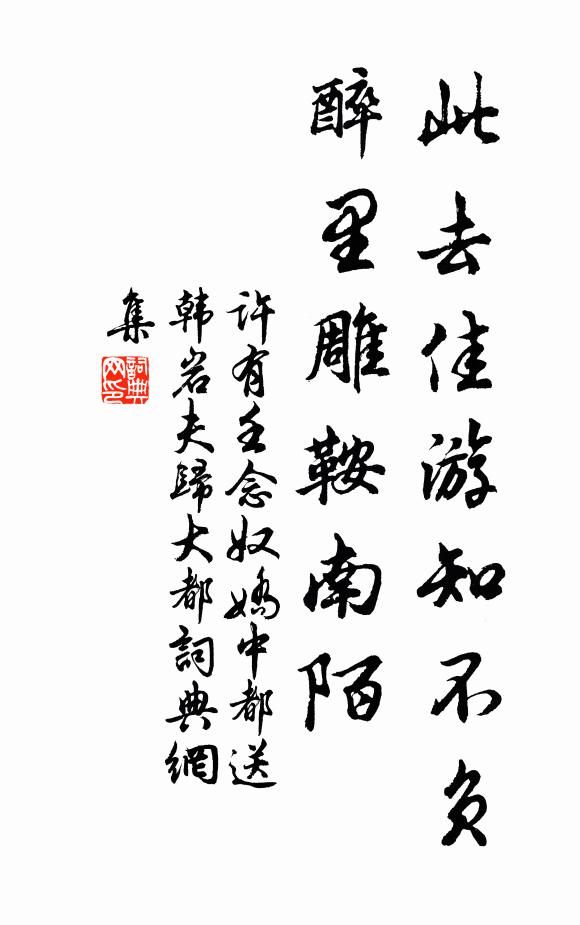 此去佳游知不负
醉里雕鞍南陌
許有壬念奴嬌中都送
韩岩夫歸大都詞典網
集
詞典
网印